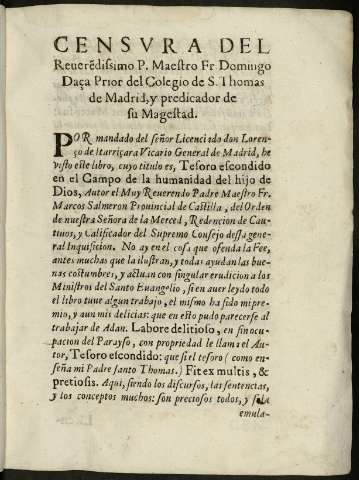 CENSVRA DEL
Reuerēdissimo P. Maestro Fr Domingo
Daça Prior del Colegio de S. Thomas
de Madrid, y predicador de
su Magestad.
POR mandado del señor Licenciado don Loren-
ço de Itarriçara Vicario General de Madrid, he
visto este libro, cuyo titulo es, Tesoro escondido
en el Campo de la humanidad del hijo de
Dios, Autor el Muy Reuerendo Padre Maestro Fr.
Marcos Salmeron Prouincial de Castilla, del Orden
de nuestra Señora de la Merced, Redencion de Cau-
tiuos, y Calificador del Supremo Consejo dessa gene-
ral Inquisicion. No ay en el cosa que ofenda la Fee,
antes muchas que la ilustran, y todas ayudan las bue-
nas costumbres, y actuan con singular erudicion a los
Ministros del Santo Euangelio, si en auer leydo todo
el libro tuue algun trabajo, el mismo ha sido mi pre-
mio, y aun mis delicias: que en esto pudo parecerse al
trabajar de Adan. Labore delitioso, en fin ocu-
pacion del Parayso, con propriedad le llama el Au-
tor, Tesoro escondido: que si el tesoro (como en-
seña mi Padre santo Thomas.) Fit ex multis, &
pretiosis. Aqui, siendo los discursos, las sentencias,
y los conceptos muchos: son preciosos todos, y sola
emula-